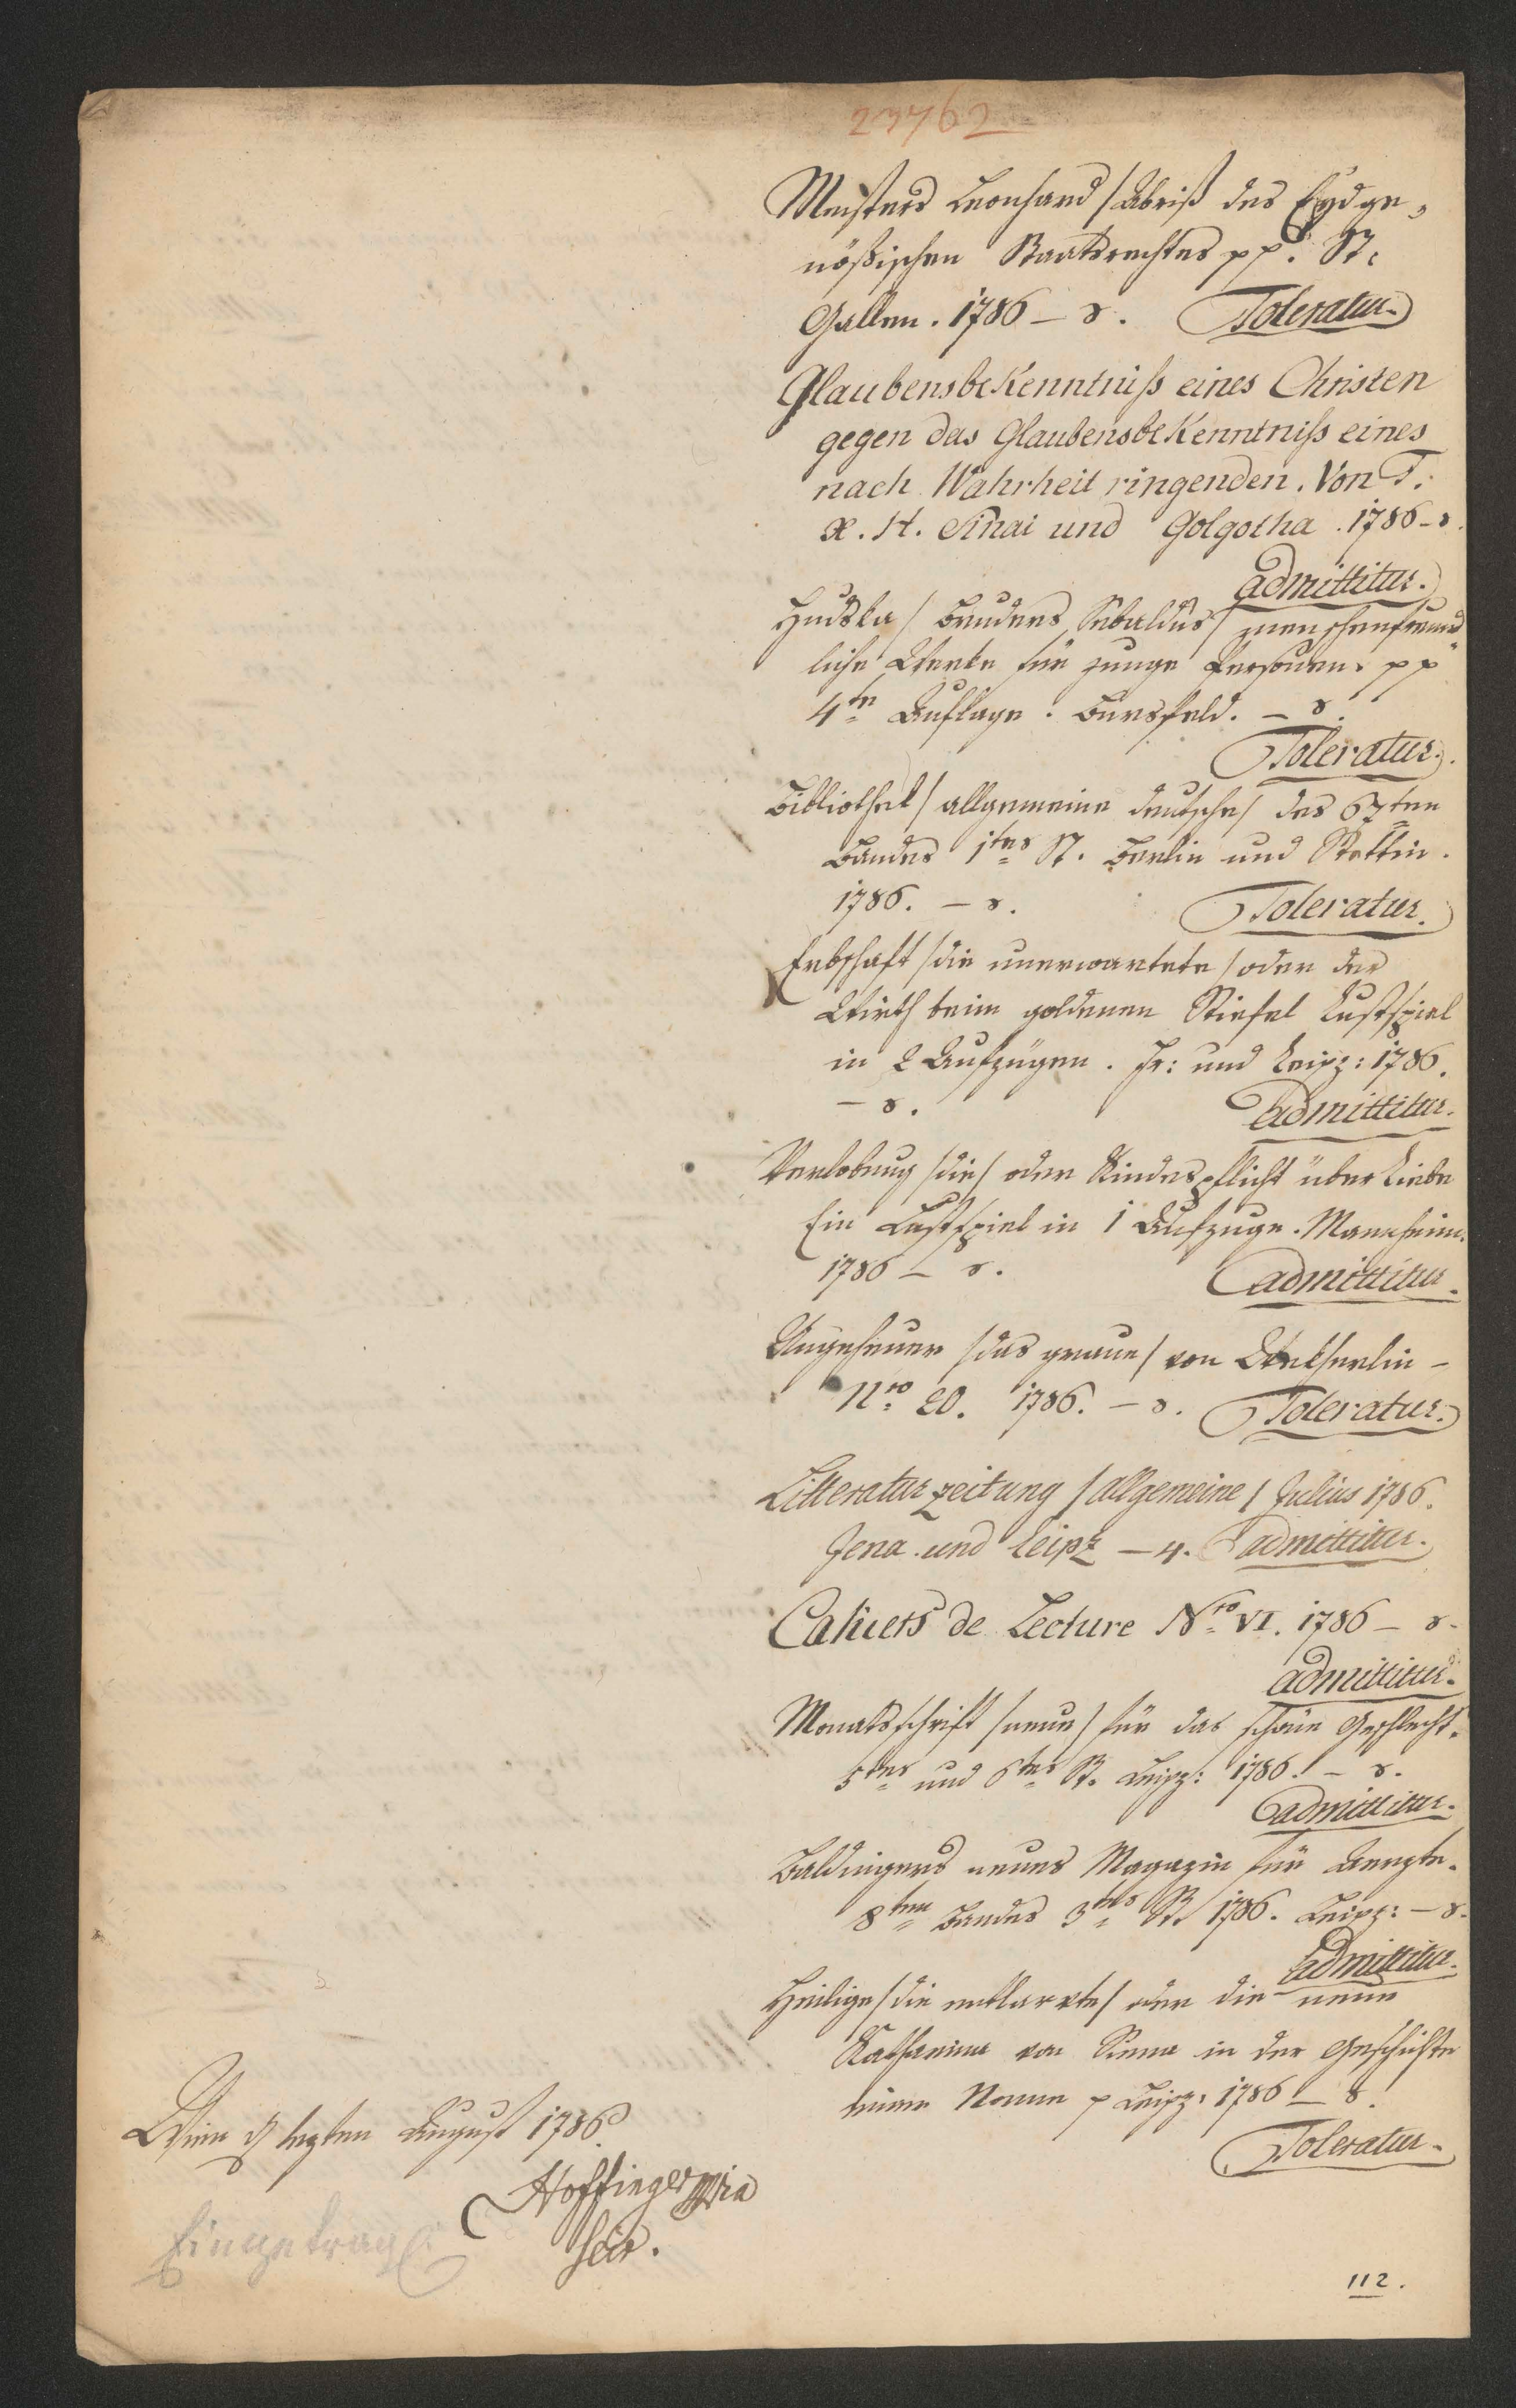 23762
Meisters Leonhard / Abriß des Eydge-
nößischen Staatsrechtes pp. St.
Gallen. 1786 – 8. Toleratur.
Glaubensbekenntniß eines Christen
gegen das Glaubensbekenntniß eines
nach Wahrheit ringenden. Von T.
X. H. Sinai und Golgotha. 1786 – 8.
admittitur.
/ Bruders Sebaldus / menschenfreund-
liche Werke für junge Personen. pp
4te Auflage. Bursfeld. – 8.
Toleratur.
Bibliothek / allgemeine deutsche / des 67ten
Bandes 1tes St. Berlin und Stettin.
1786. – 8. Toleratur.
Erbschaft / die unerwartete / oder der
Wirth beim goldenen Stiefel Lustspiel
in 2 Aufzügen. Fr: und Leipz: 1786.
– 8. admittitur.
Verlobung / die / oder Kindespflicht über Liebe
Ein Lustspiel in 1 Aufzuge. Mannheim.
1786 – 8. admittitur.
Ungeheuer / das graue / von Wekherlin –
Nro 20. 1786. – 8. Toleratur.
Litteraturzeitung / allgemeine / Julius 1786.
Jena und Leipz – 4. admittitur.
Cahiers de Lecture Nro VI. 1786 – 8.
admittitur.
Monatsschrift / neue / für das schöne Geschlecht.
5tes und 6tes St. Leipz: 1786. – 8.
admittitur.
Baldingers neues Magazin für Aerzte.
8ten Bandes 3tes St. 1786. Leipz: – 8.
admittitur.
Heilige / die entlarvte / oder die neue
Katharina von Siena in der Geschichte
einer Nonne p Leipz: 1786 – 8.
Toleratur.
Wien d letzten August 1786.
Hoffinger mpia
Secr.
Eingetragen
112.